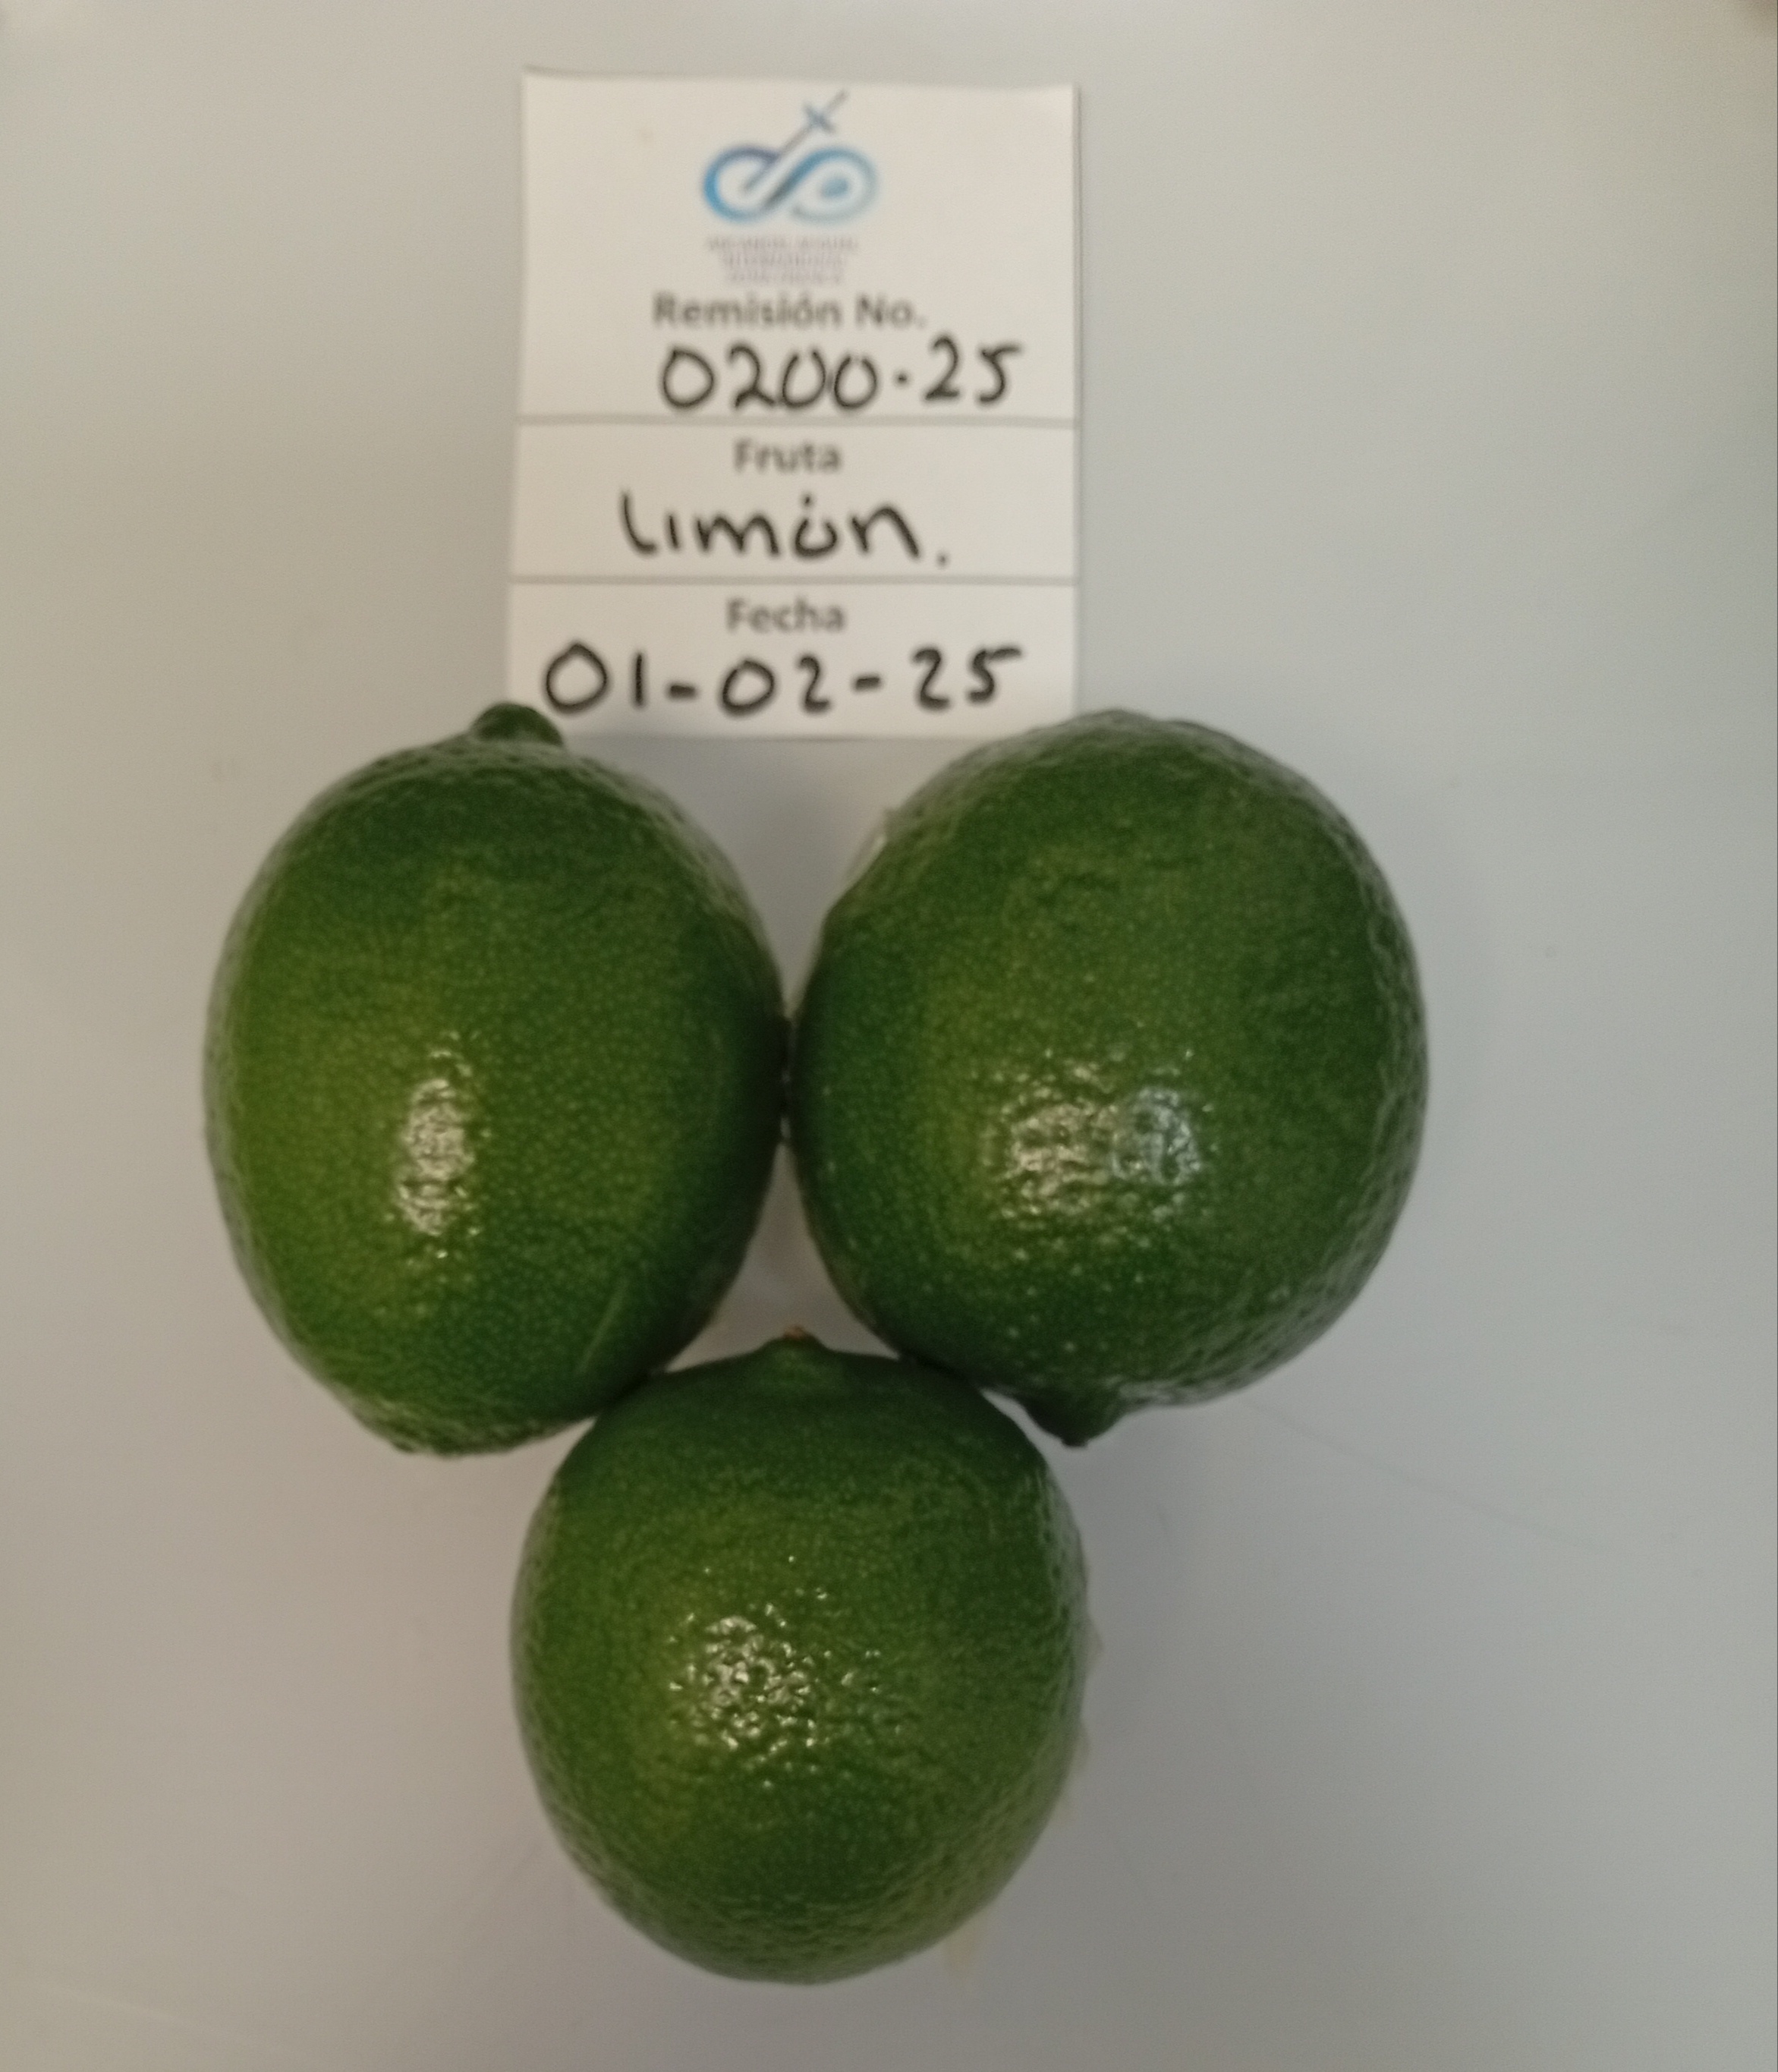 Remisión No.
0200-25
Fruta
Limón.
Fecha
01-02-25